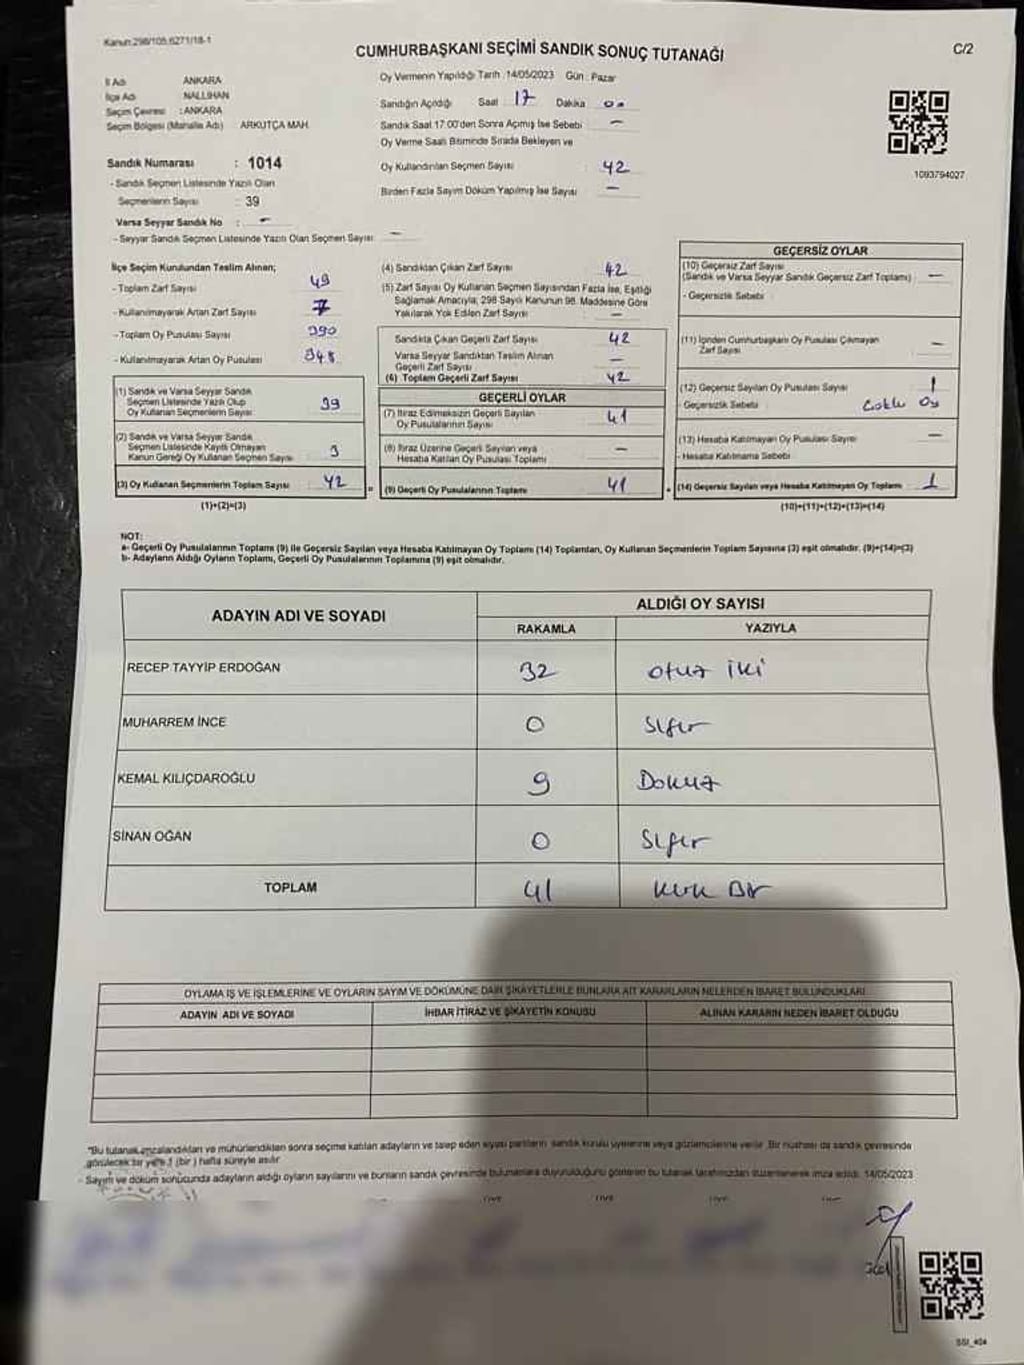 Kanun:298/105,6271/18-1
CUMHURBAŞKANI SEÇİMİ SANDIK SONUÇ TUTANAĞI
C/2
İl Adı ANKARA
İlçe Adı NALLIHAN
Seçim Çevresi : ANKARA
Seçim Bölgesi (Mahalle Adı) ARKUTÇA MAH.
Oy Vermenin Yapıldığı Tarih :14/05/2023 Gün : Pazar
Sandığın Açıldığı Saat 17 Dakika 00
Sandık Saat 17:00'den Sonra Açılmış İse Sebebi –
Oy Verme Saati Bitiminde Sırada Bekleyen ve
Oy Kullandırılan Seçmen Sayısı : 42
Birden Fazla Sayım Döküm Yapılmış İse Sayısı –
1093794027
Sandık Numarası : 1014
- Sandık Seçmen Listesinde Yazılı Olan
Seçmenlerin Sayısı : 39
Varsa Seyyar Sandık No : –
- Seyyar Sandık Seçmen Listesinde Yazılı Olan Seçmen Sayısı: –
İlçe Seçim Kurulundan Teslim Alınan;
- Toplam Zarf Sayısı 49
- Kullanılmayarak Artan Zarf Sayısı 7
- Toplam Oy Pusulası Sayısı 390
- Kullanılmayarak Artan Oy Pusulası 348
(1) Sandık ve Varsa Seyyar Sandık
Seçmen Listesinde Yazılı Olup
Oy Kullanan Seçmenlerin Sayısı 39
(2) Sandık ve Varsa Seyyar Sandık
Seçmen Listesinde Kayıtlı Olmayan
Kanun Gereği Oy Kullanan Seçmen Sayısı 3
(3) Oy Kullanan Seçmenlerin Toplam Sayısı 42
(1)+(2)=(3)
(4) Sandıktan Çıkan Zarf Sayısı 42
(5) Zarf Sayısı Oy Kullanan Seçmen Sayısından Fazla İse, Eşitliği
Sağlamak Amacıyla, 298 Sayılı Kanunun 98. Maddesine Göre
Yakılarak Yok Edilen Zarf Sayısı –
Sandıkta Çıkan Geçerli Zarf Sayısı 42
Varsa Seyyar Sandıktan Teslim Alınan
Geçerli Zarf Sayısı –
(6) Toplam Geçerli Zarf Sayısı 42
GEÇERLİ OYLAR
(7) İtiraz Edilmeksizin Geçerli Sayılan
Oy Pusulalarının Sayısı 41
(8) İtiraz Üzerine Geçerli Sayılan veya
Hesaba Katılan Oy Pusulası Toplamı –
= (9) Geçerli Oy Pusulalarının Toplamı 41
GEÇERSİZ OYLAR
(10) Geçersiz Zarf Sayısı
(Sandık ve Varsa Seyyar Sandık Geçersiz Zarf Toplamı) –
- Geçersizlik Sebebi
(11) İçinden Cumhurbaşkanı Oy Pusulası Çıkmayan
Zarf Sayısı –
(12) Geçersiz Sayılan Oy Pusulası Sayısı 1
- Geçersizlik Sebebi Çoklu Oy
(13) Hesaba Katılmayan Oy Pusulası Sayısı –
- Hesaba Katılmama Sebebi
+ (14) Geçersiz Sayılan veya Hesaba Katılmayan Oy Toplamı 1
(10)+(11)+(12)+(13)=(14)
NOT:
a- Geçerli Oy Pusulalarının Toplamı (9) ile Geçersiz Sayılan veya Hesaba Katılmayan Oy Toplamı (14) Toplamları, Oy Kullanan Seçmenlerin Toplam Sayısına (3) eşit olmalıdır. (9)+(14)=(3)
b- Adayların Aldığı Oyların Toplamı, Geçerli Oy Pusulalarının Toplamına (9) eşit olmalıdır.
ADAYIN ADI VE SOYADI
ALDIĞI OY SAYISI
RAKAMLA YAZIYLA
RECEP TAYYİP ERDOĞAN 32 otuz iki
MUHARREM İNCE 0 Sıfır
KEMAL KILIÇDAROĞLU 9 Dokuz
SİNAN OĞAN 0 Sıfır
TOPLAM 41 Kırk Bir
OYLAMA İŞ VE İŞLEMLERİNE VE OYLARIN SAYIM VE DÖKÜMÜNE DAİR ŞİKAYETLERLE BUNLARA AİT KARARLARIN NELERDEN İBARET BULUNDUKLARI
ADAYIN ADI VE SOYADI İHBAR İTİRAZ VE ŞİKAYETİN KONUSU ALINAN KARARIN NEDEN İBARET OLDUĞU
*Bu tutanak imzalandıktan ve mühürlendikten sonra seçime katılan adayların ve talep eden siyasi partilerin sandık kurulu üyelerine veya gözlemcilerine verilir. Bir nüshası da sandık çevresinde
görülecek bir yere 1 (bir) hafta süreyle asılır.
- Sayım ve döküm sonucunda adayların aldığı oyların sayılarını ve bunların sandık çevresinde bulunanlara duyurulduğunu gösteren bu tutanak tarafımızdan düzenlenerek imza edildi. 14/05/2023
SSI_404